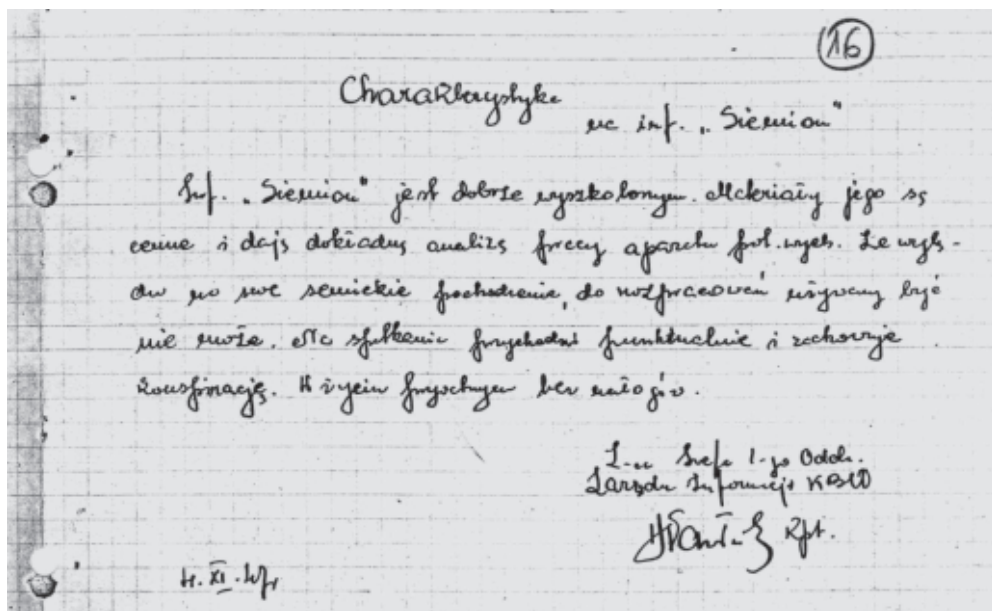 16
Charakterystyka
na inf. „Siemion"
Inf. „Siemion" jest dobrze wyszkolonym. Materiały jego są
cenne i dają dokładną analizę pracy aparatu pol.wych. Ze wzglę-
du na swe semickie pochodzenie, do rozpracowań używany być
nie może. Na spotkania przychodzi punktualnie i zachowuje
konspirację. W życiu prywatnym bez nałogów.
Z-ca Szefa I-go Oddz.
Zarządu Informacji KBW
kpt.
XI.